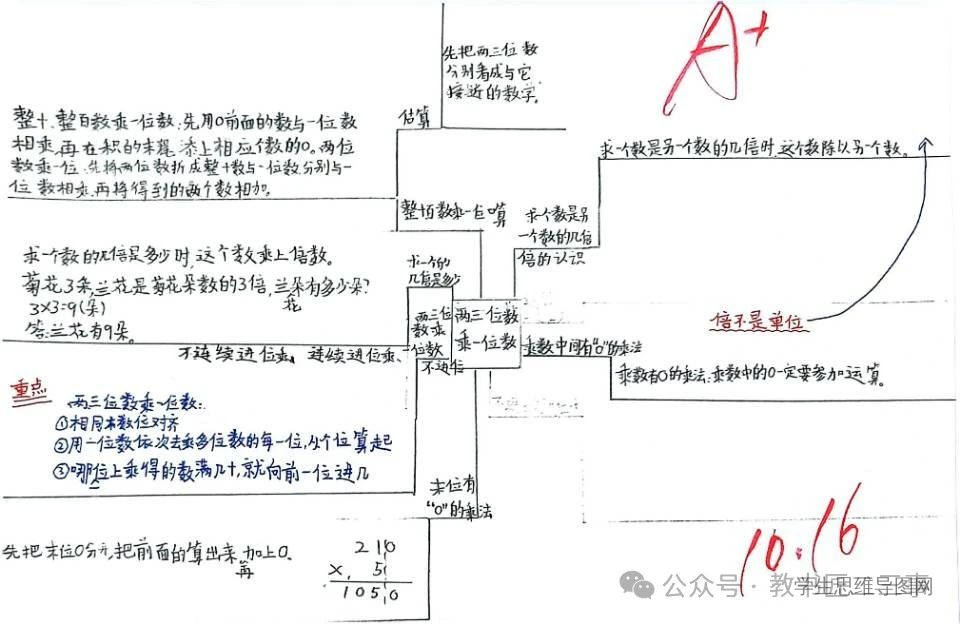 A+
先把两三位数
分别看成与它
接近的数学。
估算
整十、整百数乘一位数:先用0前面的数与一位数
相乘,再在积的末尾添上相应个数的0。两位
数乘一位:先将两位数拆成整十数与一位数,分别与一
位数相乘,再将得到的两个数相加。
整十百数乘一位口算
求一个数是另一个数的几倍时,这个数除以另一个数。
求个数是另
一个数的几倍
倍的认识
倍不是单位
求一个数的几倍是多少时,这个数乘上倍数。
菊花3朵,兰花是菊花朵数的3倍,兰朵有多少朵?
花
3×3=9(朵)
答:兰花有9朵。
求一个的
几倍是多少
两三位
数乘
一位数
不进位
两三位数
乘一位数
乘数中间有"0"的乘法
乘数有0的乘法:乘数中的0一定要参加运算。
不连续进位乘、连续进位乘、
重点
两三位数乘一位数:
①相同本数位对齐
②用一位数依次去乘多位数的每一位,从个位算起
③哪位上乘得的数满几十,就向前一位进几
末位有
"0"的乘法
先把末位0分开,把前面的算出来,加上0。
再
210
×. 5
1050
10.16
公众号·教
学生思维导图网